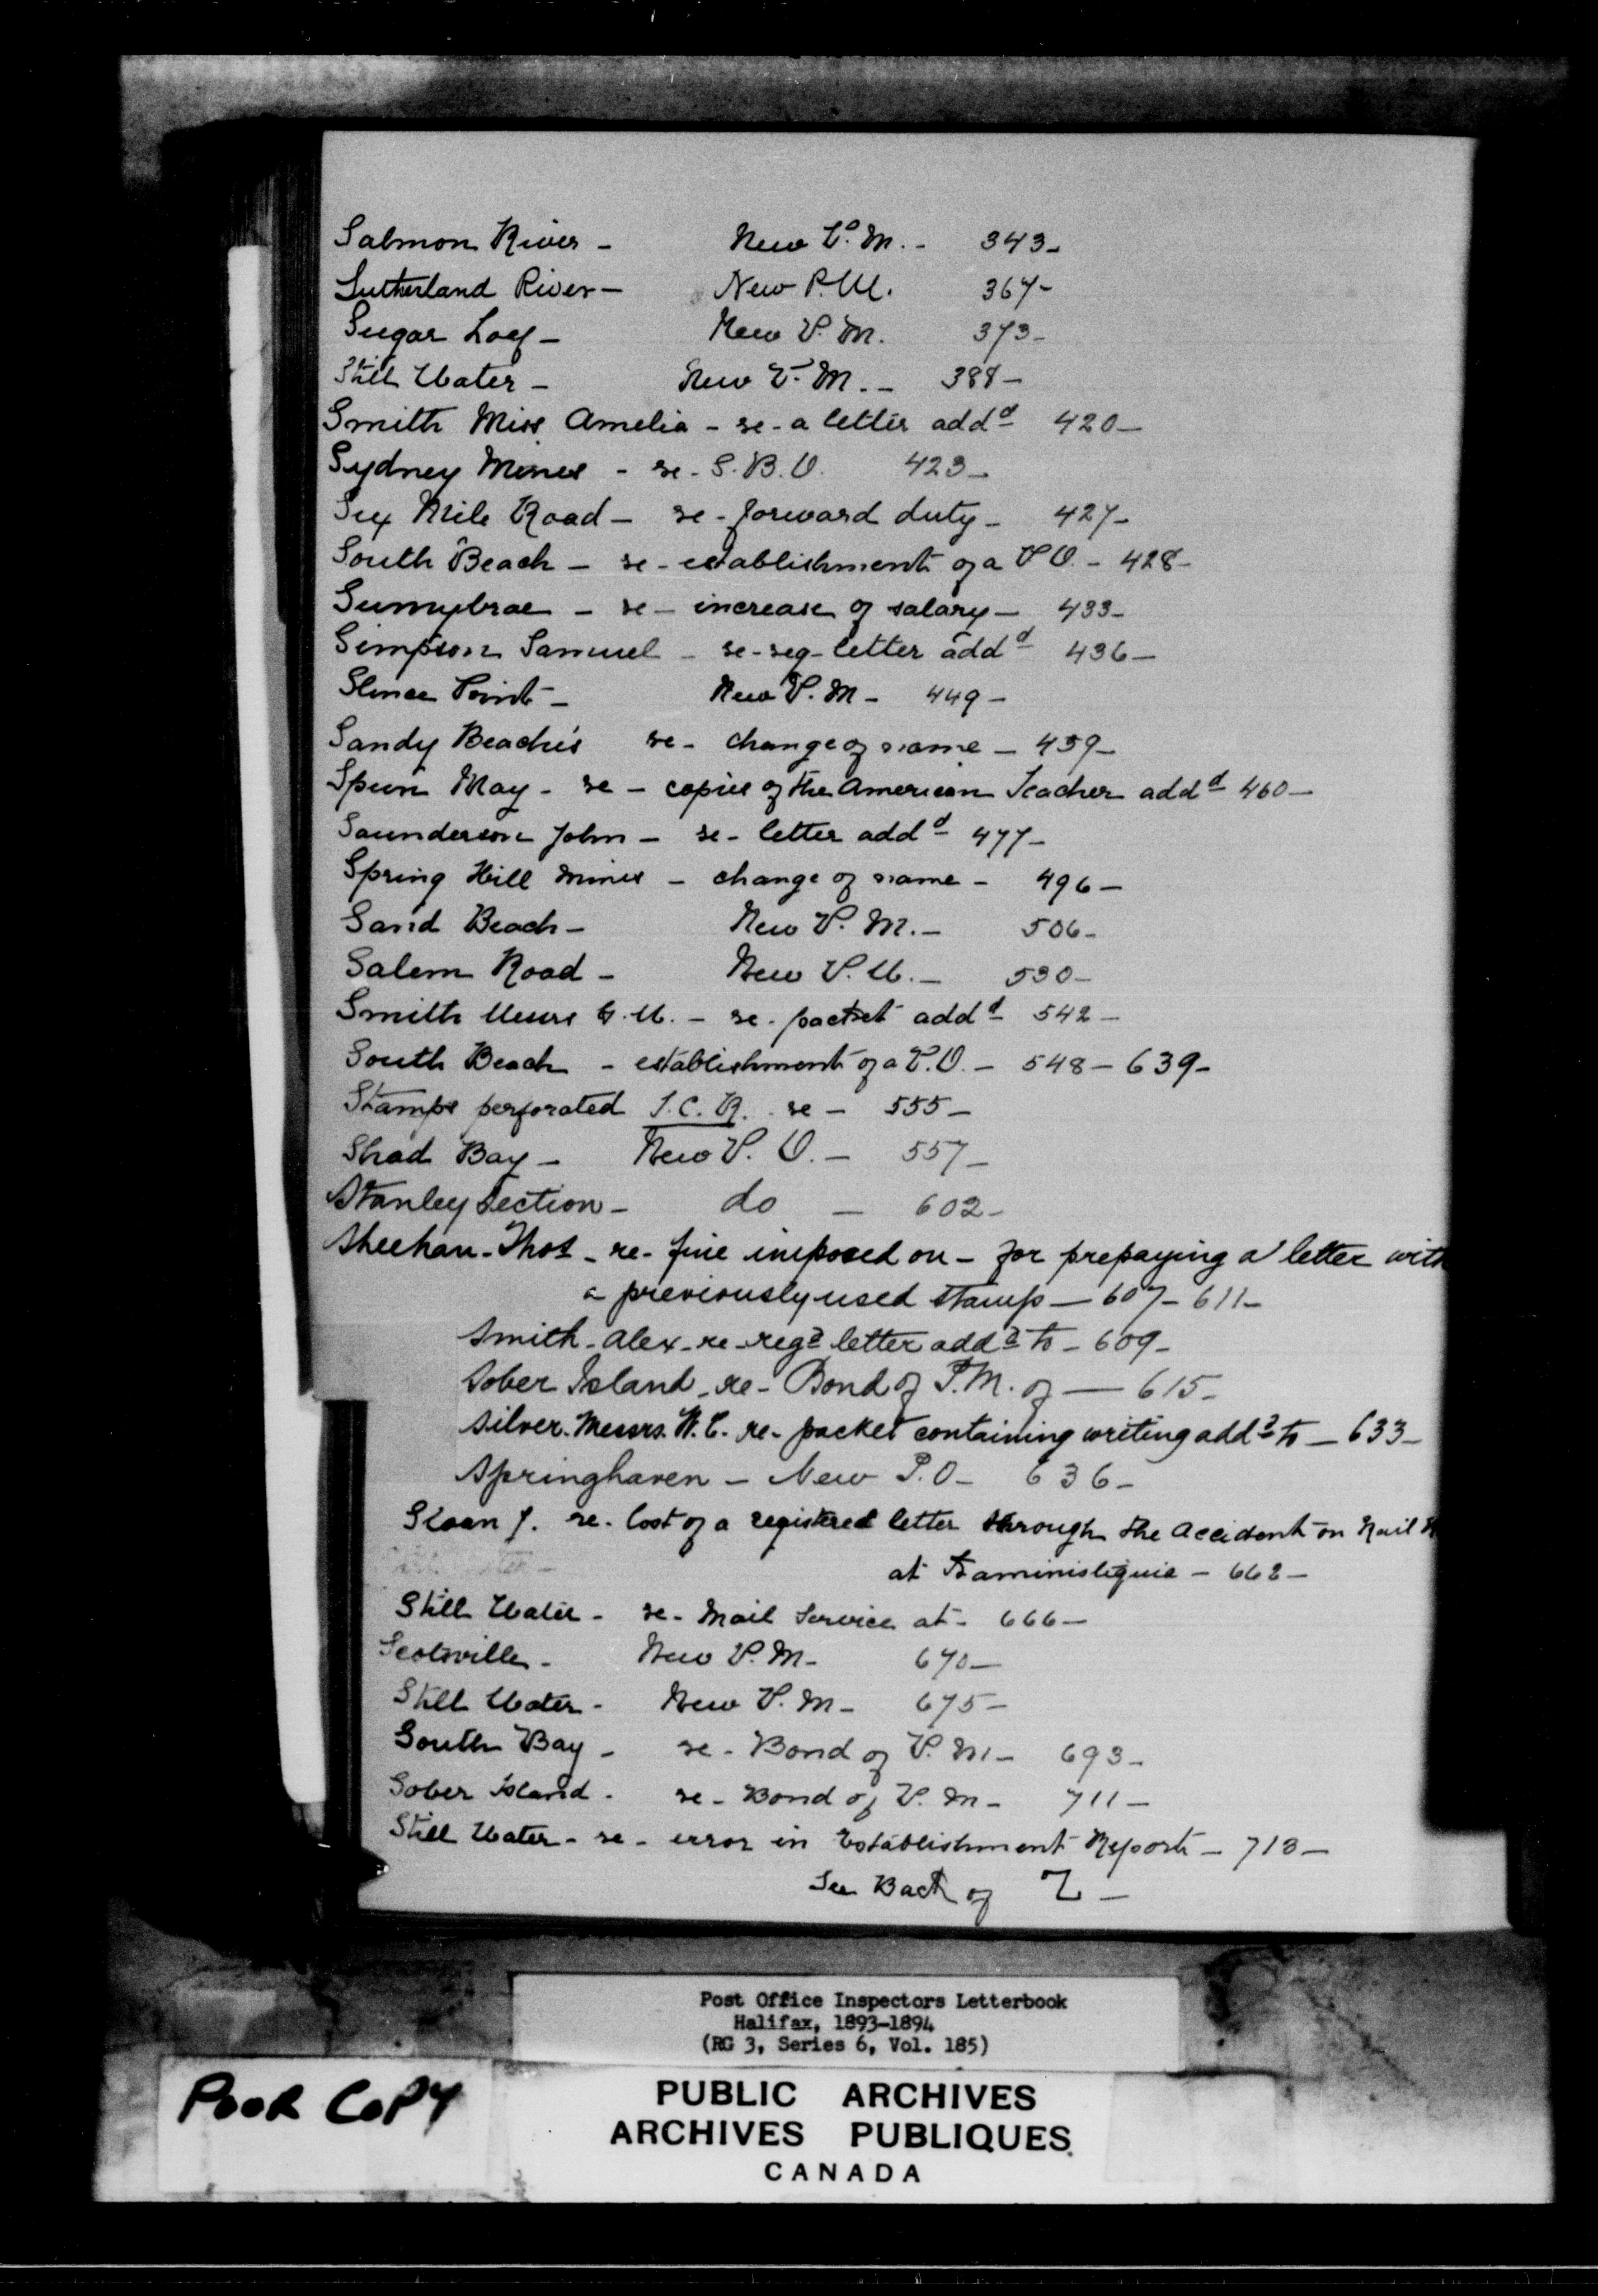 Salmon River - New P.M. - 343-
Sutherland River - New P.M. 367-
Sugar Loaf - New P.M. 373-
Still Water - New P.M. - 388-
Smith Miss Amelia - re - a letter addd 420-
Sydney Mines - re - S.B.O. 423-
Six Mile Road - re - forward duty - 427-
South Beach - re - establishment of a P.O. - 428-
Sunnybrae - re - increase of salary - 433-
Simpson Samuel - re - reg - letter addd 436-
Point - New P.M - 449-
Sandy Beaches re - change of name - 459-
May - re - copies of the American Teacher addd 460-
Saunderson John - re - letter addd 477-
Spring Hill Mines - change of name - 496-
Sand Beach - New P.M. - 506-
Salem Road - New P.M. - 530-
Smith Messrs G.M. - re - packet addd 542-
South Beach - establishment of a P.O. - 548 - 639-
Stamps perforated I.C.R. re - 555-
Shad Bay - New P.O. - 557-
Stanley Section - do - 602-
Sheehan - Thos - re - fine imposed on - for prepaying a letter with
a previously used stamp - 607 - 611-
Smith - Alex - re - regd letter addd to - 609-
Sober Island - re - Bond of P.M. of - 615-
Silver - Messrs. W.C. re - packet containing writing addd to - 633-
Springhaven - New P.O - 636-
Sloan J. re - lost of a registered letter through the accident on Rail
at Kaministiquia - 662-
Still Water - re - Mail Service at - 666-
Scotsville - New P.M - 670-
Still Water - New P.M - 675-
South Bay - re - Bond of P.M - 693-
Sober Island - re - Bond of P.M - 711-
Still Water - re - error in Establishment Report - 713-
See Back of Z -
Post Office Inspectors Letterbook
Halifax, 1893-1894
(RG 3, Series 6, Vol. 185)
POOR COPY
PUBLIC ARCHIVES
ARCHIVES PUBLIQUES
CANADA